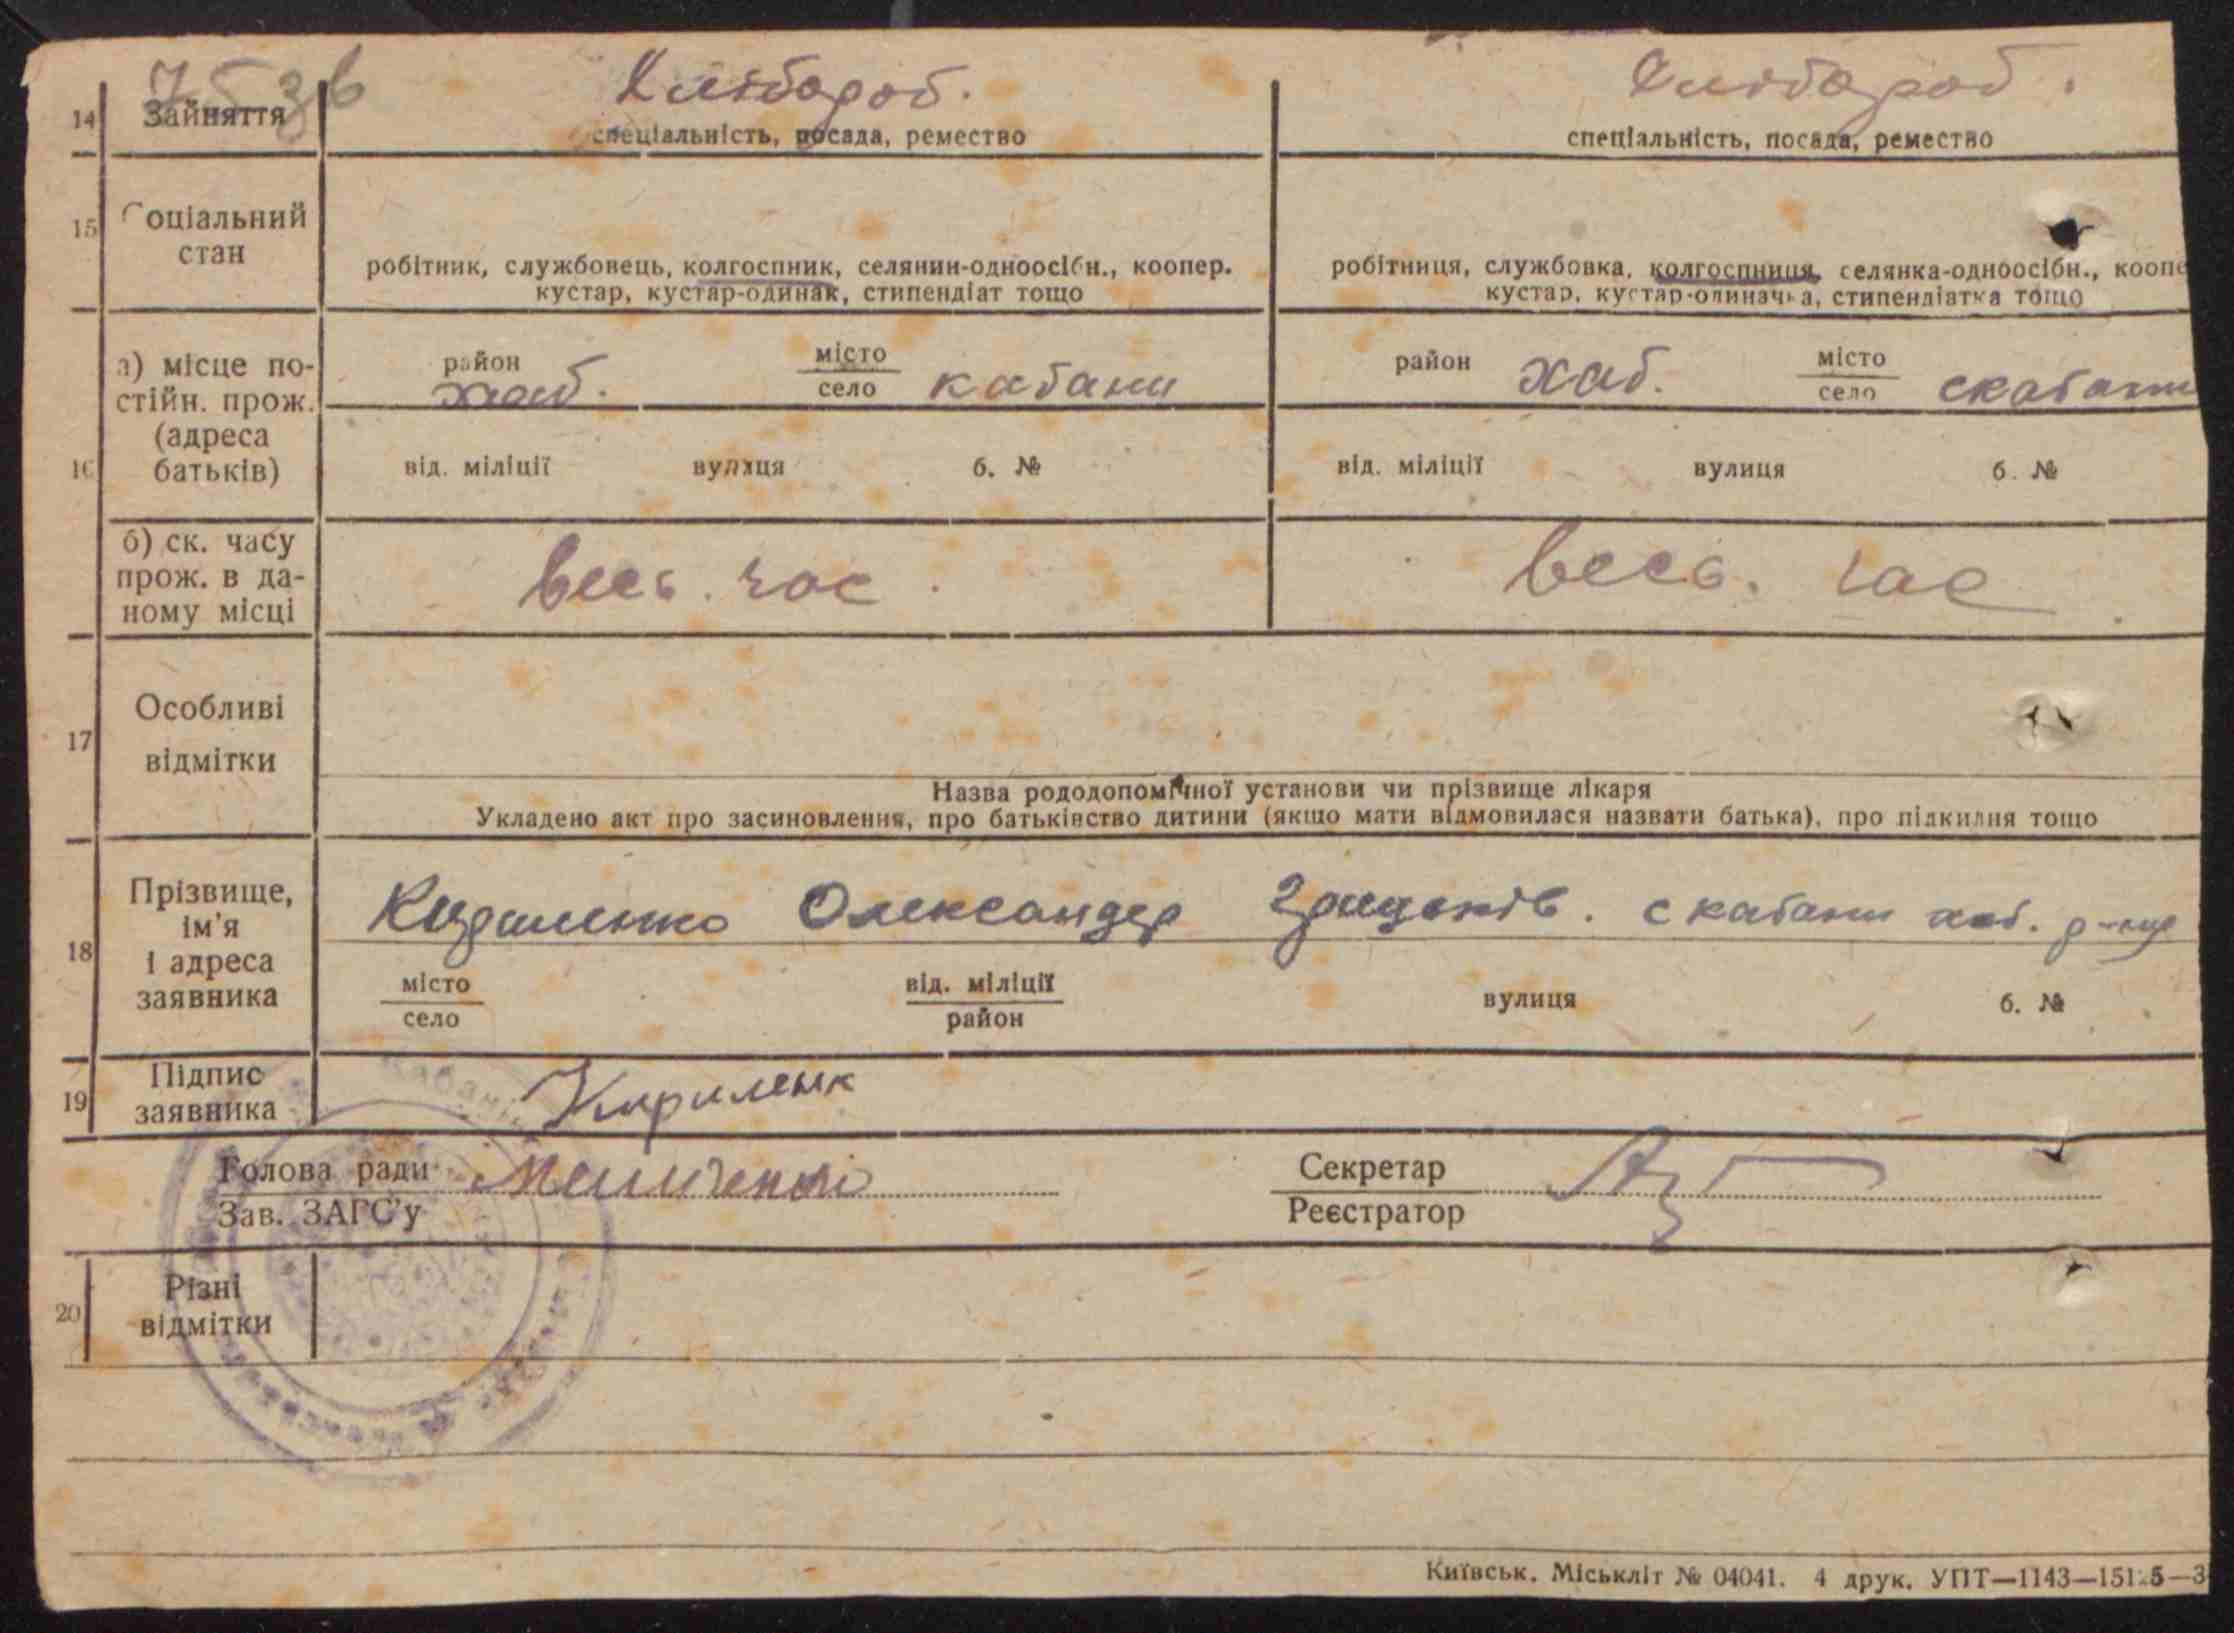 14 Зайняття Хлібороб. Хлібороб.
спеціальність, посада, ремество спеціальність, посада, ремество
15 Соціальний стан
робітник, службовець, колгоспник, селянин-одноосібн., коопер. робітниця, службовка, колгоспниця, селянка-одноосібн., коопе
кустар, кустар-одинак, стипендіат тощо кустар, кустар-одиначка, стипендіатка тощо
16 а) місце постійн. прож. (адреса батьків)
район хаб. місто село кабани район хаб. місто село с кабани
від. міліції вулиця б. № від. міліції вулиця б. №
б) ск. часу прож. в даному місці
весь. час. весь. час
17 Особливі відмітки
Назва рододопомічної установи чи прізвище лікаря
Укладено акт про засиновлення, про батьківство дитини (якщо мати відмовилася назвати батька), про підкидня тощо
18 Прізвище, ім'я і адреса заявника
Кириленко Олександер с кабани хаб. р-ну
місто село від. міліції район вулиця б. №
19 Підпис заявника Кириленк
Голова ради Секретар
Зав. ЗАГС'у Реєстратор
20 Різні відмітки
Київськ. Міськліт № 04041. 4 друк. УПТ—1143—15125—3